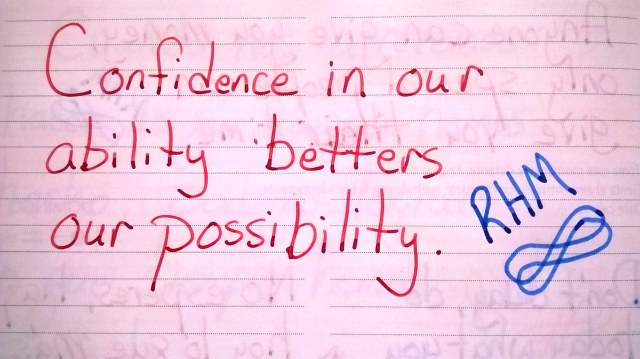 Confidence in our
ability betters
our possibility.
RHM